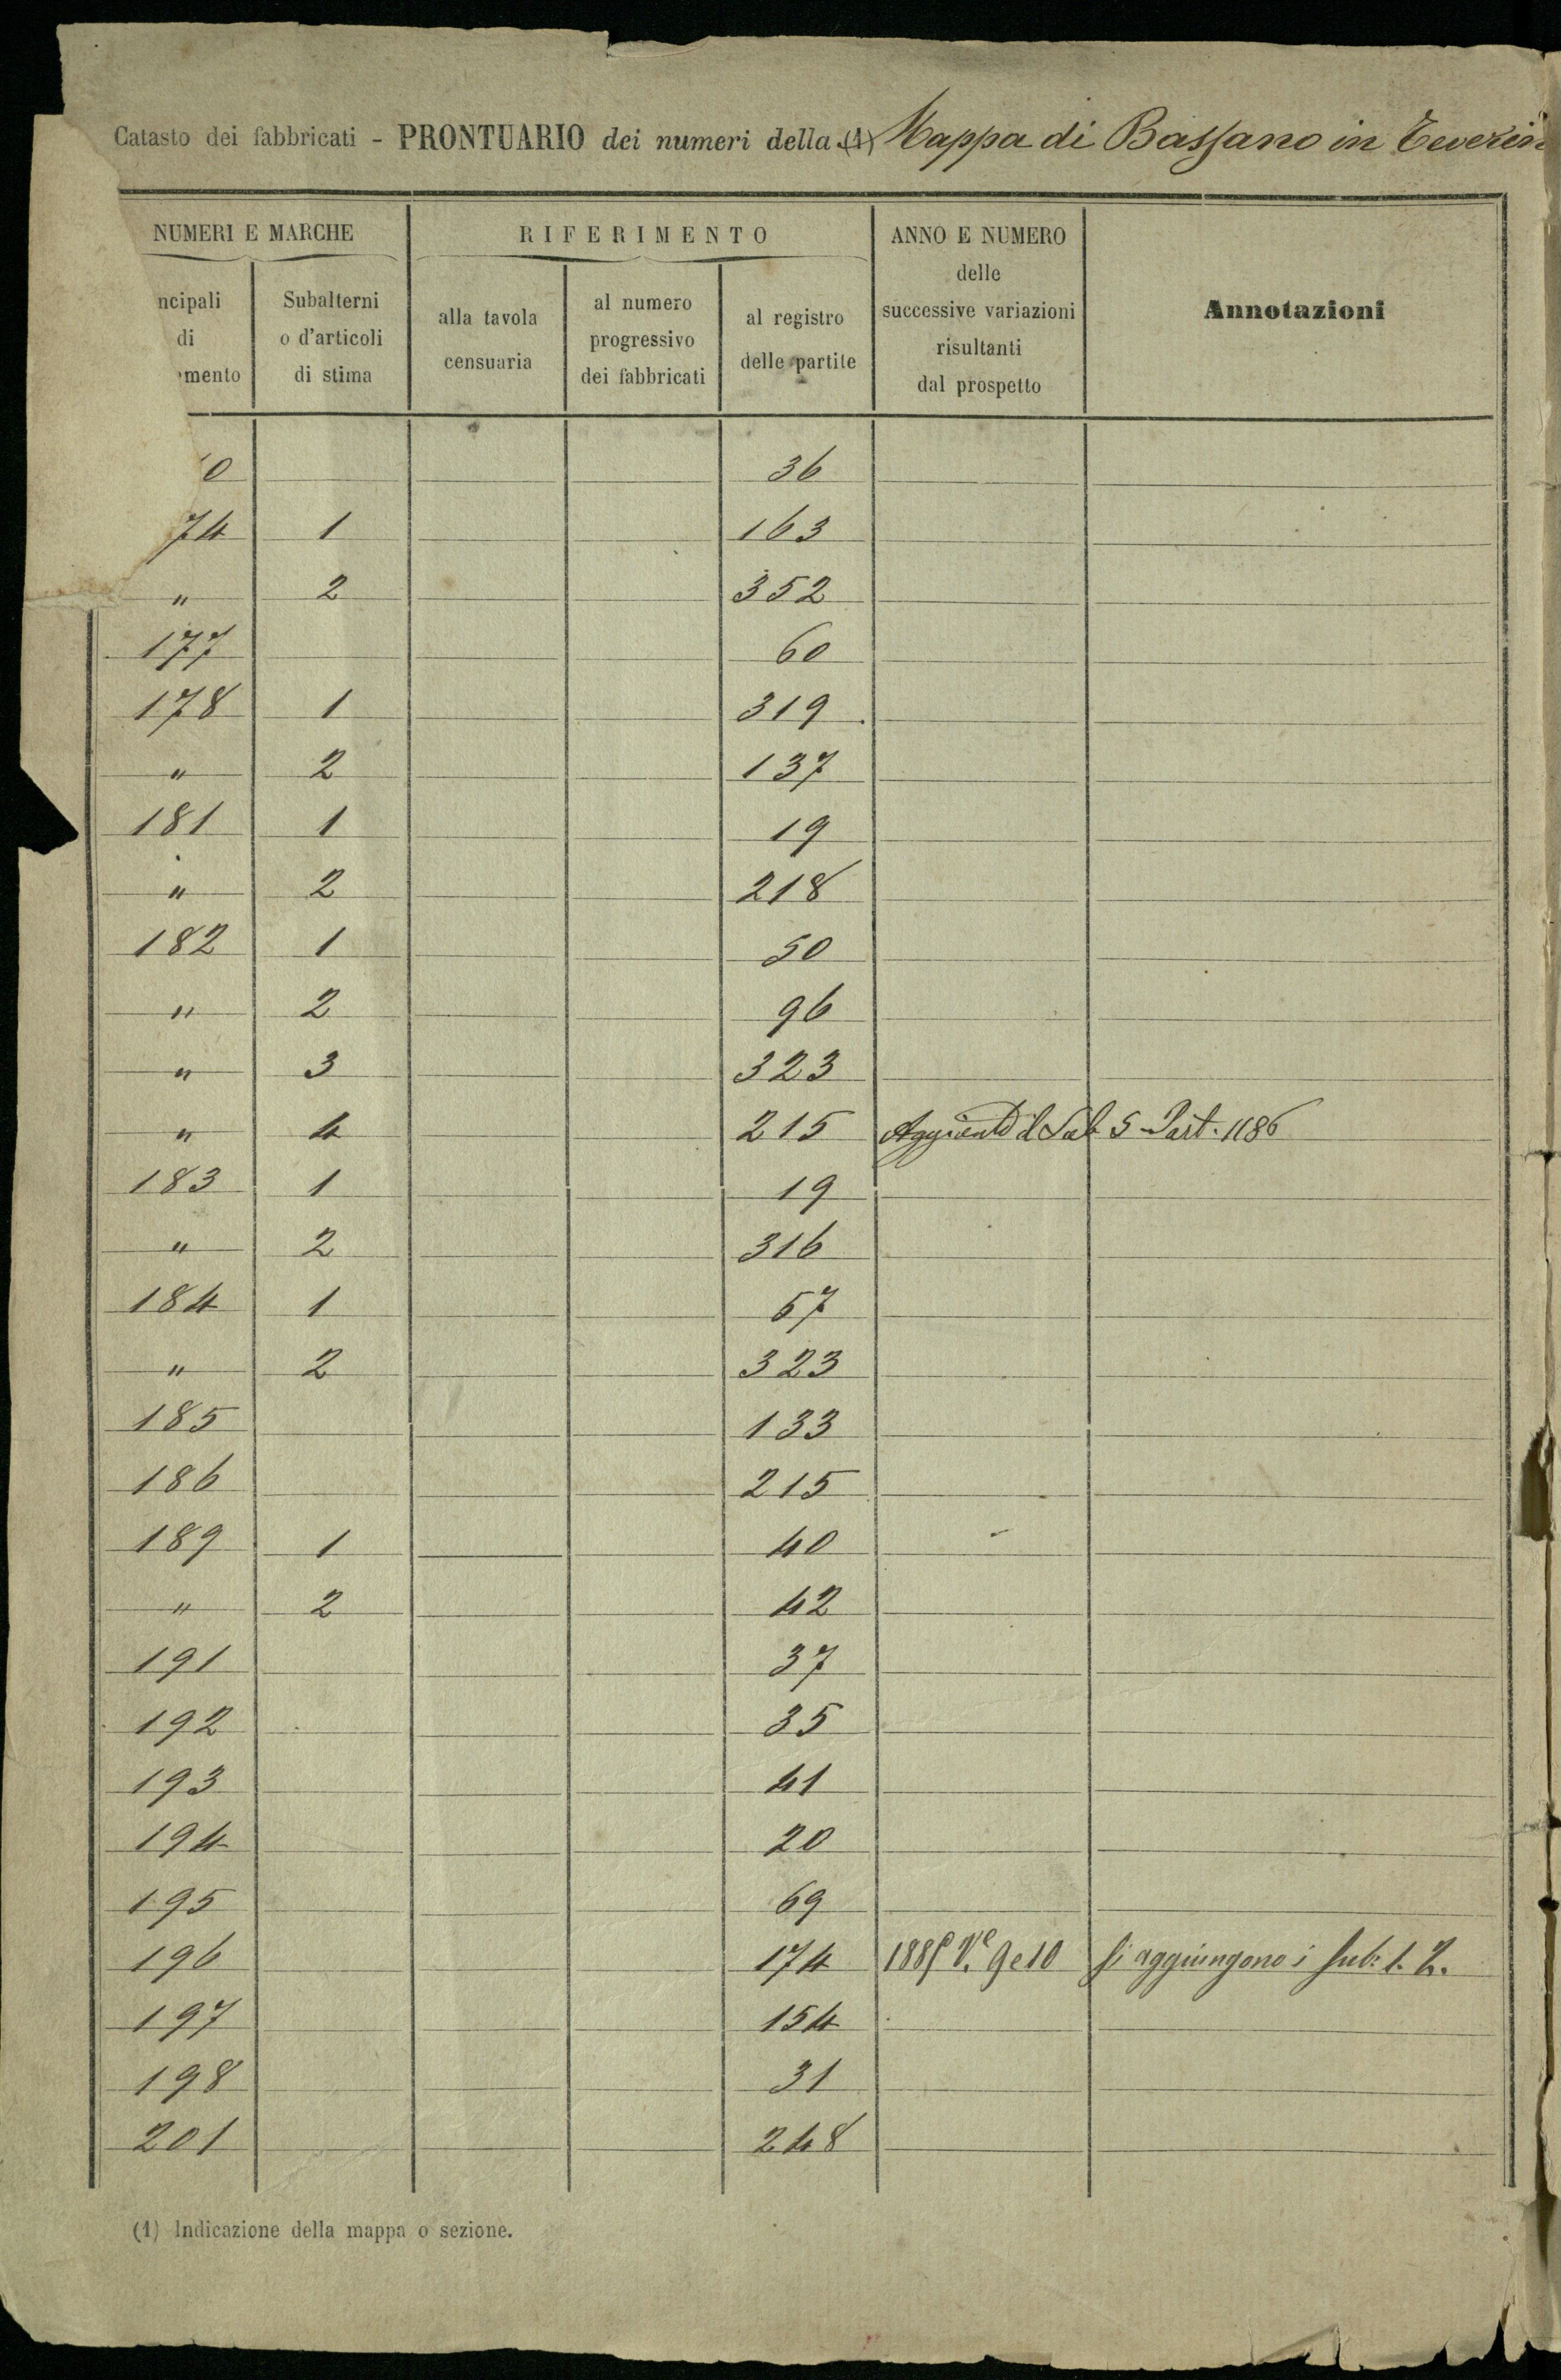 Catasto dei fabbricati - PRONTUARIO dei numeri della (1) Mappa di Bassano in Teverin
NUMERI E MARCHE
RIFERIMENTO
ANNO E NUMERO
delle
successive variazioni
risultanti
dal prospetto
Annotazioni
ncipali
di
mento
Subalterni
o d'articoli
di stima
alla tavola
censuaria
al numero
progressivo
dei fabbricati
al registro
delle partite
0 36
74 1 163
" 2 352
177 60
178 1 319
" 2 137
181 1 19
" 2 218
182 1 50
" 2 96
" 3 323
" 4 215 Aggiunto il Sub 5 Part. 1186
183 1 19
" 2 316
184 1 57
" 2 323
185 133
186 215
189 1 40
" 2 42
191 37
192 35
193 41
194 20
195 69
196 174 9 e 10 si aggiungono i sub: 1. 2.
197 154
198 31
201 248
(1) Indicazione della mappa o sezione.